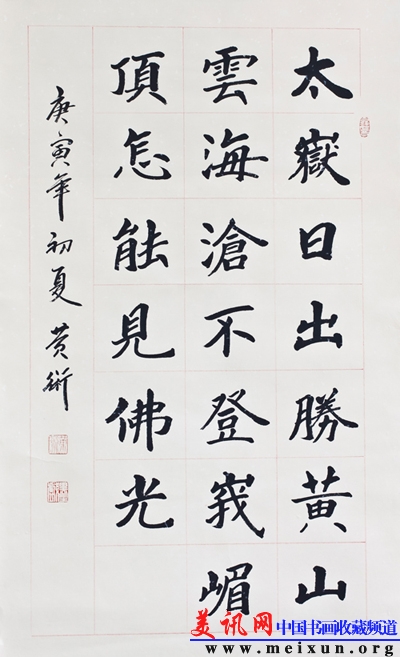 太嶽日出勝黃山
雲海滄不登峩嵋
頂怎能見佛光
庚寅年初夏 黄術
美讯网 中国书画收藏频道
www.meixun.org